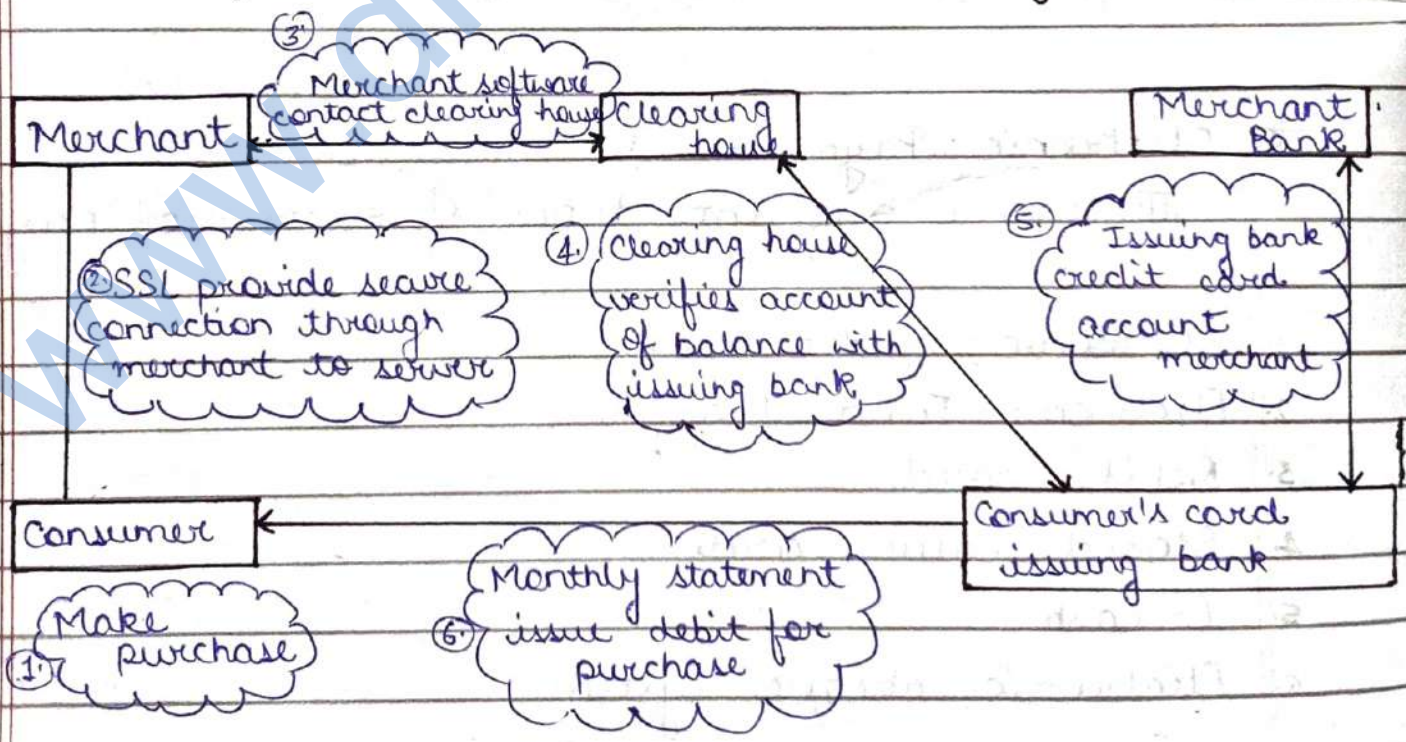 3.
Merchant software
contact clearing house
Merchant
Clearing
house
Merchant
Bank
2. SSL provide secure
connection through
merchant to server
4. Clearing house
verifies account
of balance with
issuing bank
5. Issuing bank
credit card
account
merchant
Consumer
Consumer's card
issuing bank
1. Make
purchase
6. Monthly statement
issue debit for
purchase
www.